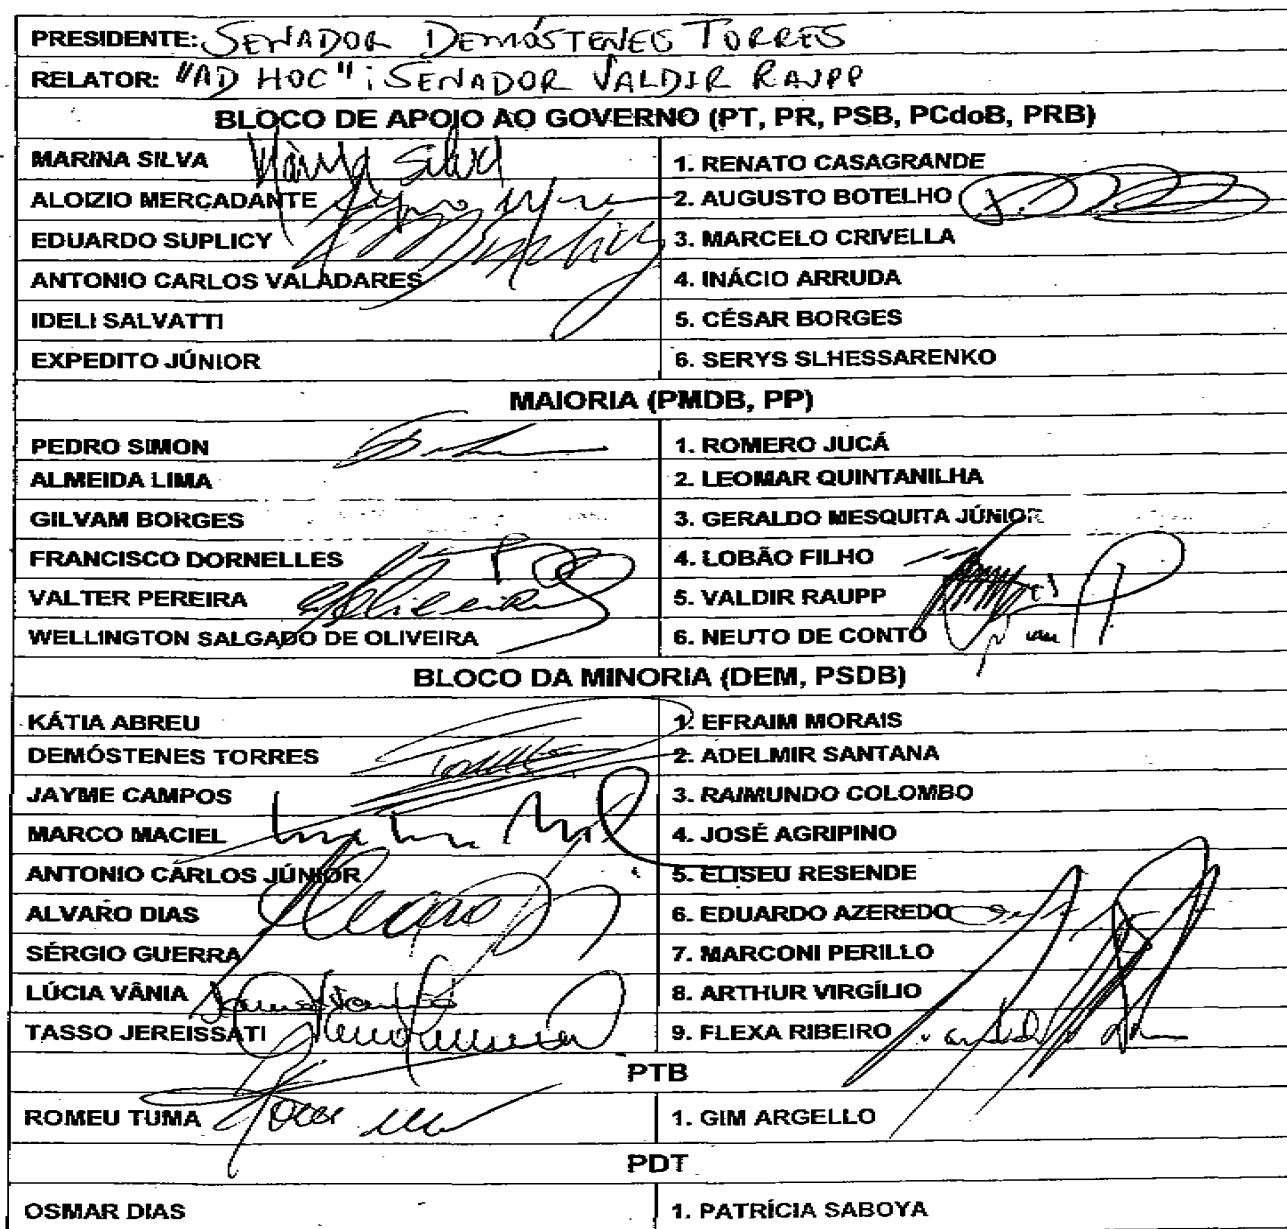 PRESIDENTE: SENADOR DEMÓSTENES TORRES
RELATOR: "AD HOC": SENADOR VALDIR RAUPP
BLOCO DE APOIO AO GOVERNO (PT, PR, PSB, PCdoB, PRB)
MARINA SILVA Marina Silva 1. RENATO CASAGRANDE
ALOIZIO MERCADANTE 2. AUGUSTO BOTELHO
EDUARDO SUPLICY 3. MARCELO CRIVELLA
ANTONIO CARLOS VALADARES 4. INÁCIO ARRUDA
IDELI SALVATTI 5. CÉSAR BORGES
EXPEDITO JÚNIOR 6. SERYS SLHESSARENKO
MAIORIA (PMDB, PP)
PEDRO SIMON 1. ROMERO JUCÁ
ALMEIDA LIMA 2. LEOMAR QUINTANILHA
GILVAM BORGES 3. GERALDO MESQUITA JÚNIOR
FRANCISCO DORNELLES 4. LOBÃO FILHO
VALTER PEREIRA 5. VALDIR RAUPP
WELLINGTON SALGADO DE OLIVEIRA 6. NEUTO DE CONTO
BLOCO DA MINORIA (DEM, PSDB)
KÁTIA ABREU 1. EFRAIM MORAIS
DEMÓSTENES TORRES 2. ADELMIR SANTANA
JAYME CAMPOS 3. RAIMUNDO COLOMBO
MARCO MACIEL 4. JOSÉ AGRIPINO
ANTONIO CARLOS JÚNIOR 5. ELISEU RESENDE
ALVARO DIAS 6. EDUARDO AZEREDO
SÉRGIO GUERRA 7. MARCONI PERILLO
LÚCIA VÂNIA 8. ARTHUR VIRGÍLIO
TASSO JEREISSATI 9. FLEXA RIBEIRO
PTB
ROMEU TUMA 1. GIM ARGELLO
PDT
OSMAR DIAS 1. PATRÍCIA SABOYA